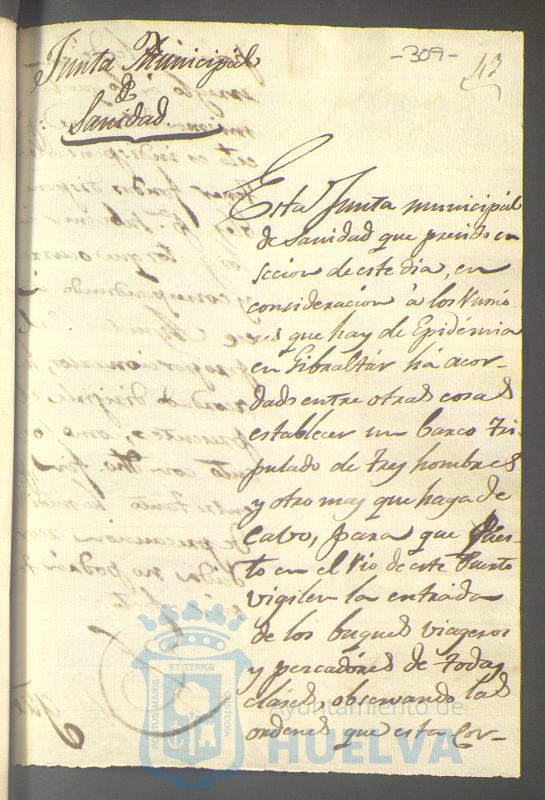 -309-
43
Junta Municipal
de
Sanidad.
Esta Junta municipal
de Sanidad que presido en
sección de este dia, en
consideracion à los Rumo-
res que hay de Epidémia
en Gibraltár há acor-
dado entre otras cosas
establecer un barco Tri-
pulado de Trey hombres
y otro may que haga de
Cabo, para que Pues-
to en el Rio de este Puerto
vigilen la entrada
de los buques viageros
y percadores de Todas
clases, observando las
ordenes que esta Cor-
ET TERRÆ
PORTUS MARIS
CUSTODIA
Ayuntamiento de
HUELVA